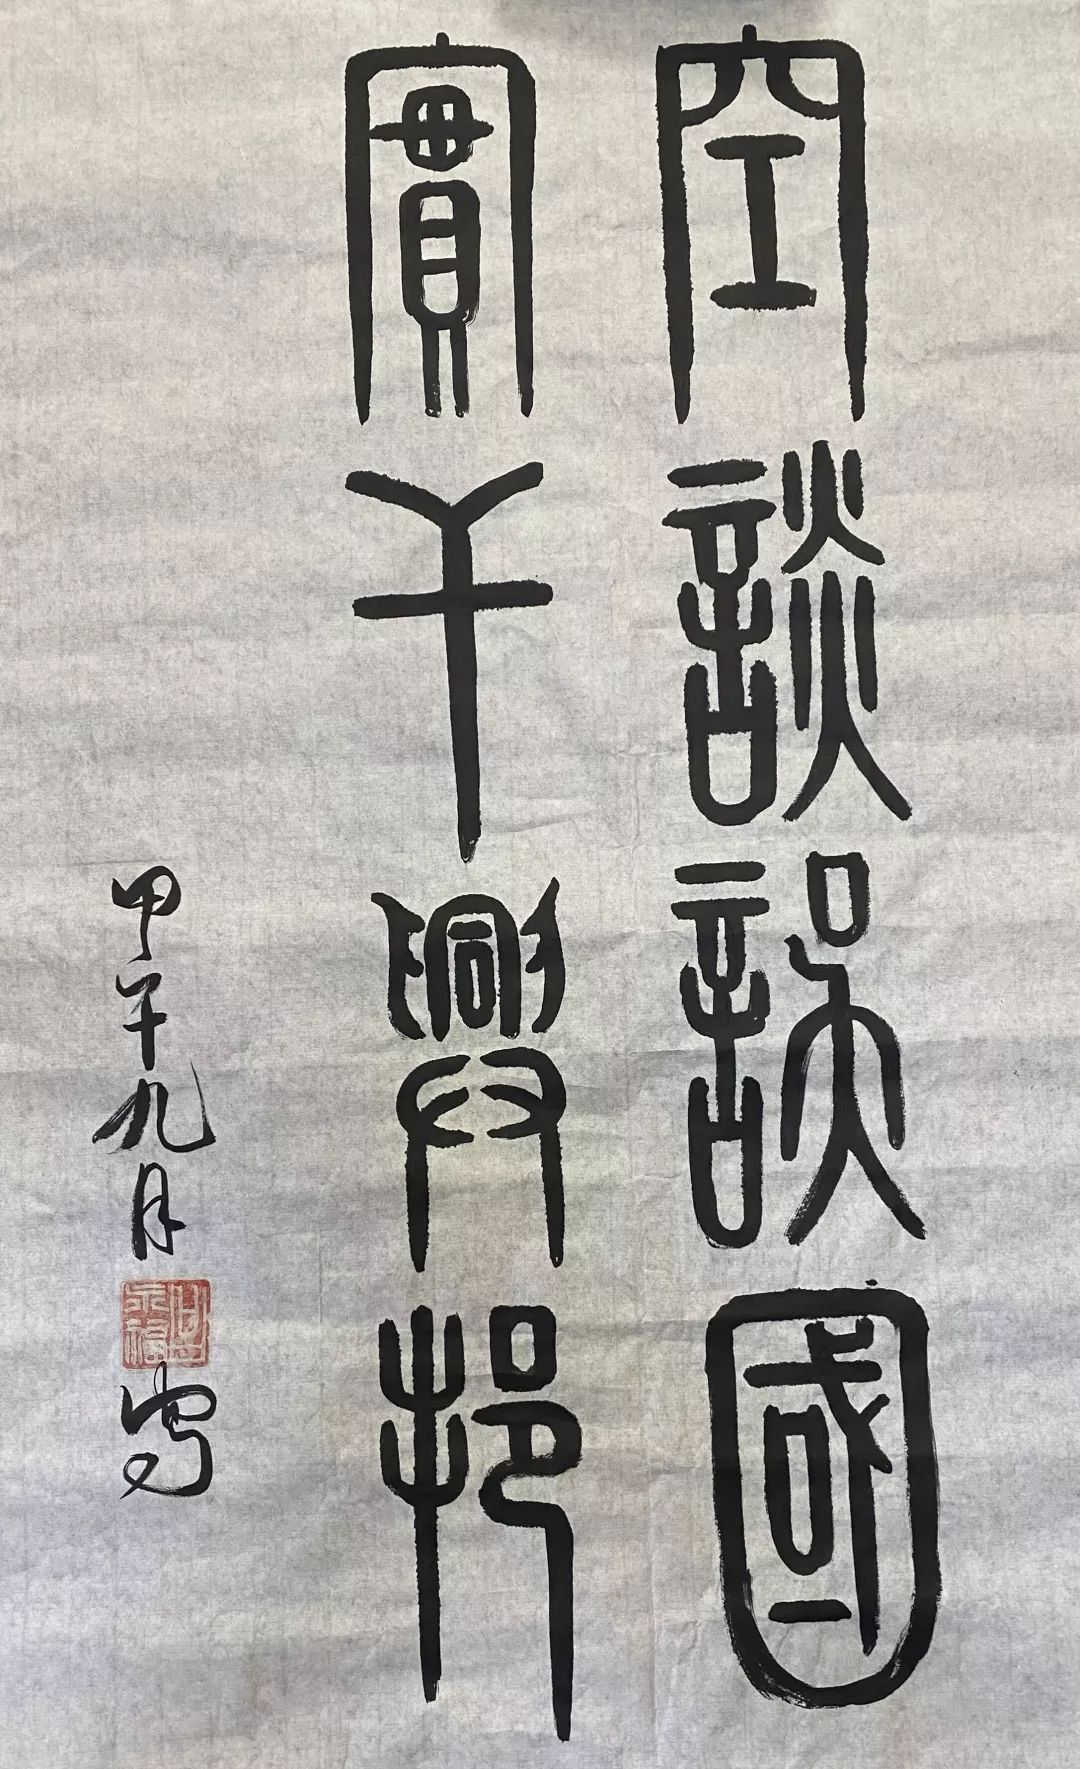 空談誤國
實干興邦
甲午九月
寫